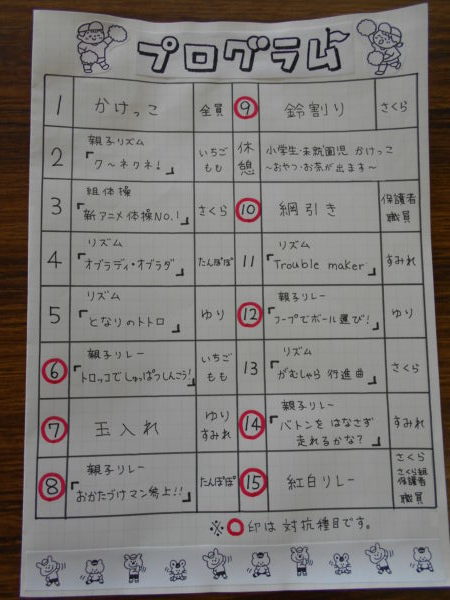 プログラム
1 かけっこ 全員
2 親子リズム
『ク〜ネクネ!』 いちご
もも
3 組体操
『新アニメ体操NO.1』 さくら
4 リズム
『オブラディ・オブラダ』 たんぽぽ
5 リズム
『となりのトトロ』 ゆり
⑥ 親子リレー
『トロッコでしゅっぱつしんこう!』 いちご
もも
⑦ 玉入れ ゆり
すみれ
⑧ 親子リレー
『おかたづけマン参上!!』 たんぽぽ
⑨ 鈴割り さくら
休憩 小学生・未就園児 かけっこ
〜おやつ・お茶が出ます〜
⑩ 綱引き 保護者
職員
11 リズム
『Trouble maker』 すみれ
⑫ 親子リレー
『フープでボール運び!』 ゆり
13 リズム
『がむしゃら行進曲』 さくら
⑭ 親子リレー
『バトンをはなさず
走れるかな?』 すみれ
⑮ 紅白リレー さくら
さくら組
保護者
職員
※○印は対抗種目です。